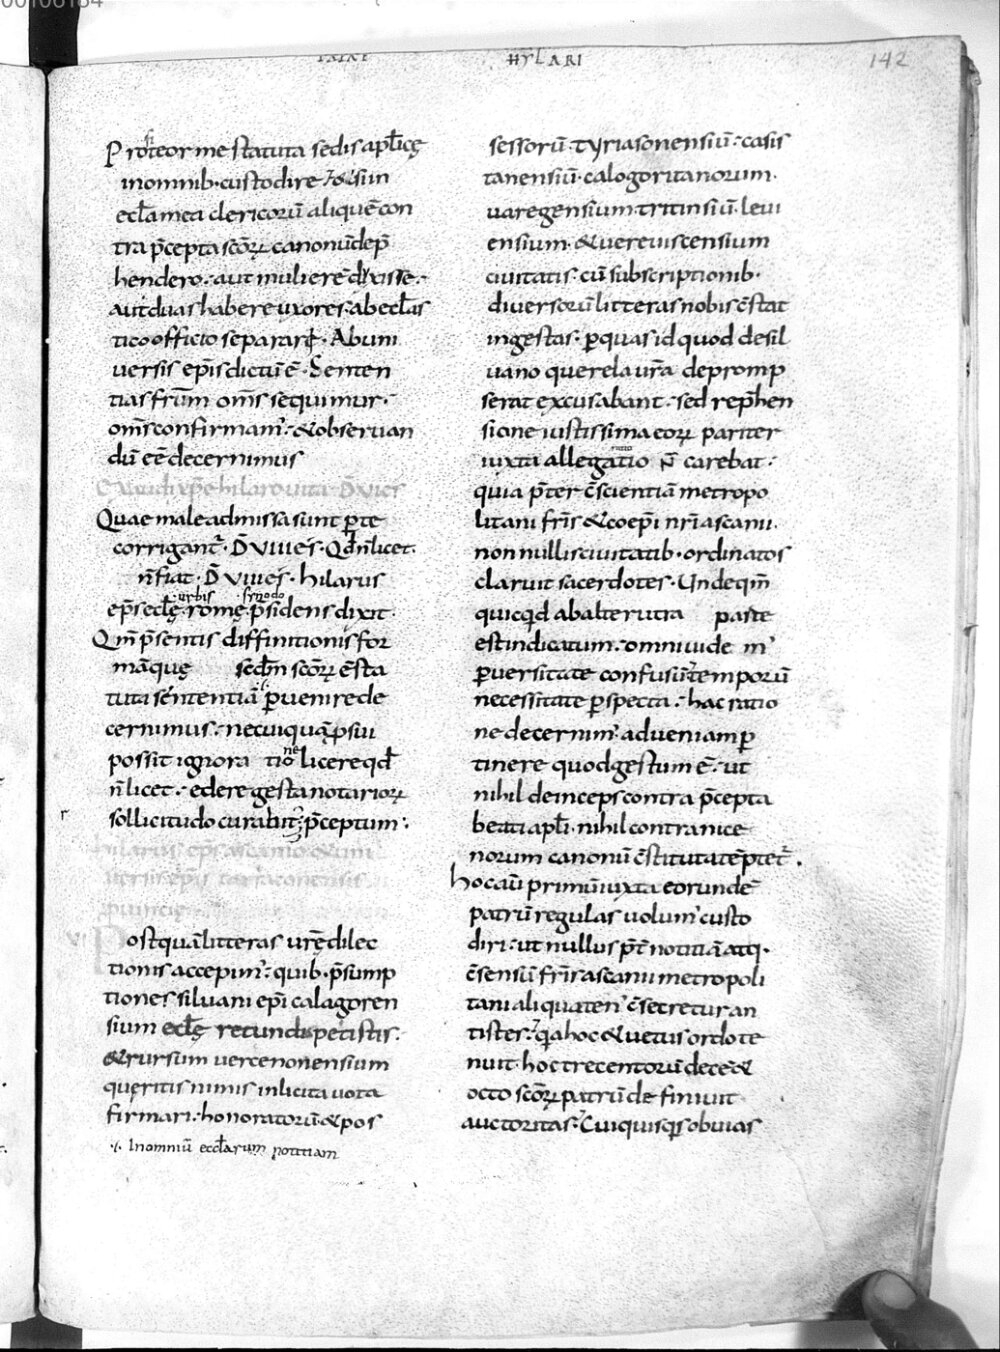 HYLARI
142
Profiteor me statuta sedis aplicę
inomnib· custodire & si in
eclamea clericorū aliquēcon
tra p̄cepta scōꝝ canonū dep̄
hendero: aut muliere dixisse·
aut duas habere uxores· ab eclas
tico officio separare· Abuni
uersis ep̄is dictū ē· Senten
tias frūm om̄s sequimur·
om̄s confirmam᾽· & obseruan
dū eē decernimus
hilaro uita
Quae male admissa sunt p̱te
corrigant᾽· D̄ VIIIIES· Qd n̄ licet·
n̄ fiat· D̄ VIIIIES· hilarus
ep̄s eclę urbis romę synodo p̄sidens dixit·
Qm̄ p̄sentis diffinitionis for
mā quę secdm scōꝝ ēsta
tuta sententiā p̱uenire de
cernimus: necuiquā p̱sui
possit ignora tione licere qd
n̄ licet: edere gesta notarioꝝ
sollicitudo curabit p̄ceptum·
hilarus ep̄s ascanio & uni
uersis ep̄is tarraconensis
p̱uincię
VI
Postquā litteras urē dilec
tionis accepim᾽: quib· p̄sump
tiones siluani ep̄i calagoren
sium eclę retundi petistis·
& rursum uercenonensium
queritis nimis inlicita uota
firmari: honoratorū & pos
·/· Inomniū ecclarum notitiam
sessorū· tyriasonensiū: casis
tanensiū· calogoritanorum·
uaregensium· tritinsiū· leui
ensium· & uereuiscensium
ciuitatis· cū subscriptionib·
diuersorū litteras nobis c̄stat
ingestas· p̱quas id quod de sil
uano querela ur̄a depromp
serat excusabant· sed rep̄hen
sione iustissima eoꝝ pariter
iuxta allegatio n̄ carebat·
quia p̄ter c̄scientiā metropo
litani fr̄is & coep̄i nr̄i ascanii·
non nullis ciuitatib· ordinatos
claruit sacerdotes· Unde qm̄
quicqd ab alterutra parte
est indicatum· omni uide m᾽
p̱uersitate confusū· temporū
necessitate p̱specta· hac ratio
ne decernim᾽ adueniam p̱
tinere quod gestum ē· ut
nihil deinceps contra p̄cepta
beati apli· nihil contra nice
norum canonū c̄stituta tēptet᾽·
hoc aū primū iuxta eorundē
patrū regulas uolum᾽ custo
diri· ut nullus p̄t̄ notitiā atq·
c̄sensū fr̄is ascanii metropoli
tani aliquaten᾽ c̄secretur an
tistes· qa hoc & uetus ordo te
nuit· hoc trecentorū dece &
octo scōꝝ patrū definiuit
auctoritas· Cui quisqs obuias